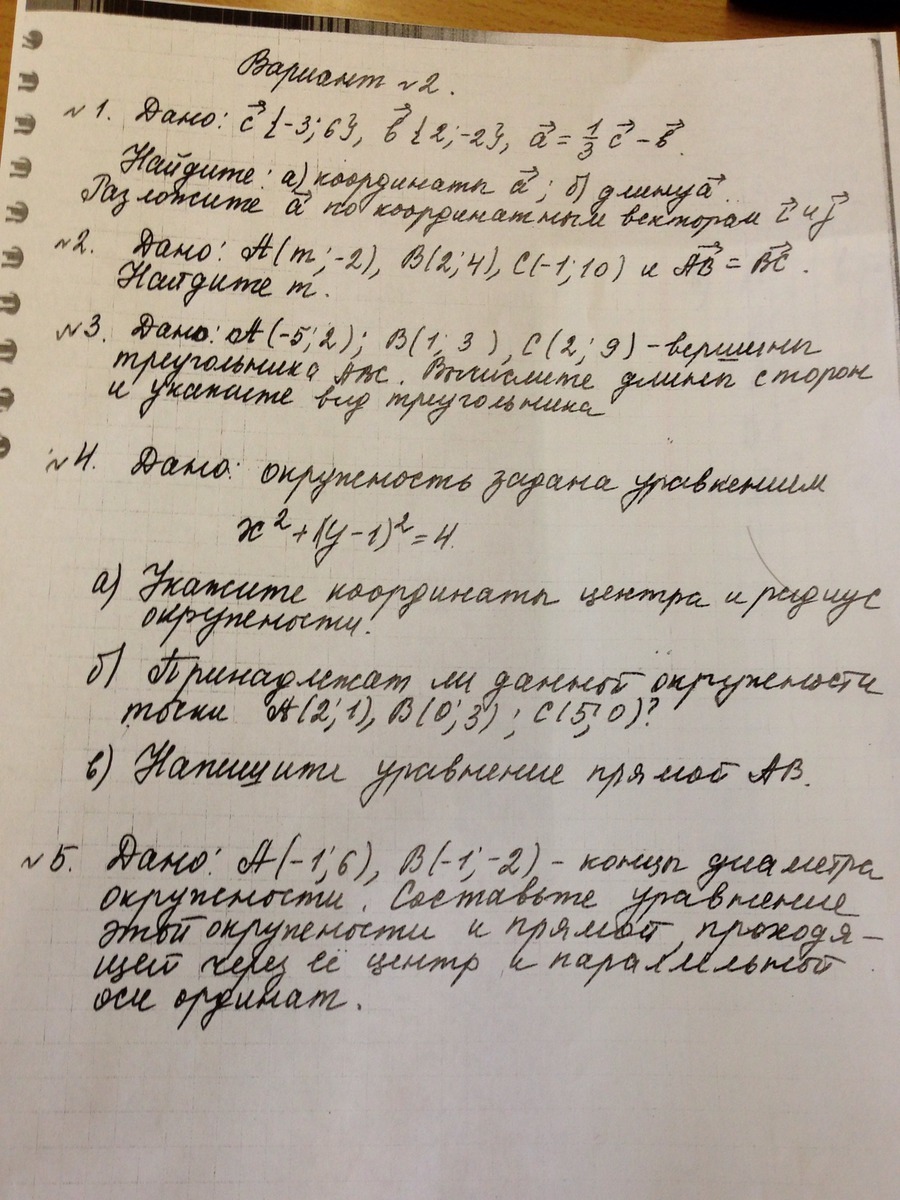 Вариант №2.
№1. Дано: c⃗ {-3; 6}, b⃗ {2; -2}, a⃗ = 1/3 c⃗ - b⃗.
Найдите: а) координаты a⃗; б) длину a⃗.
Разложите a⃗ по координатным векторам i⃗ и j⃗
№2. Дано: А(m; -2), В(2; 4), С(-1; 10) и AB⃗ = BC⃗.
Найдите m.
№3. Дано: А(-5; 2); В(1; 3), С(2; 9) - вершины
треугольника АВС. Вычислите длины сторон
и укажите вид треугольника
№4. Дано: окружность задана уравнением
x² + (y - 1)² = 4.
а) Укажите координаты центра и радиус
окружности.
б) Принадлежат ли данной окружности
точки А(2; 1), В(0; 3); С(5; 0)?
в) Напишите уравнение прямой АВ.
№5. Дано: А(-1; 6), В(-1; -2) - концы диаметра
окружности. Составьте уравнение
этой окружности и прямой, проходя-
щей через её центр и параллельной
оси ординат.